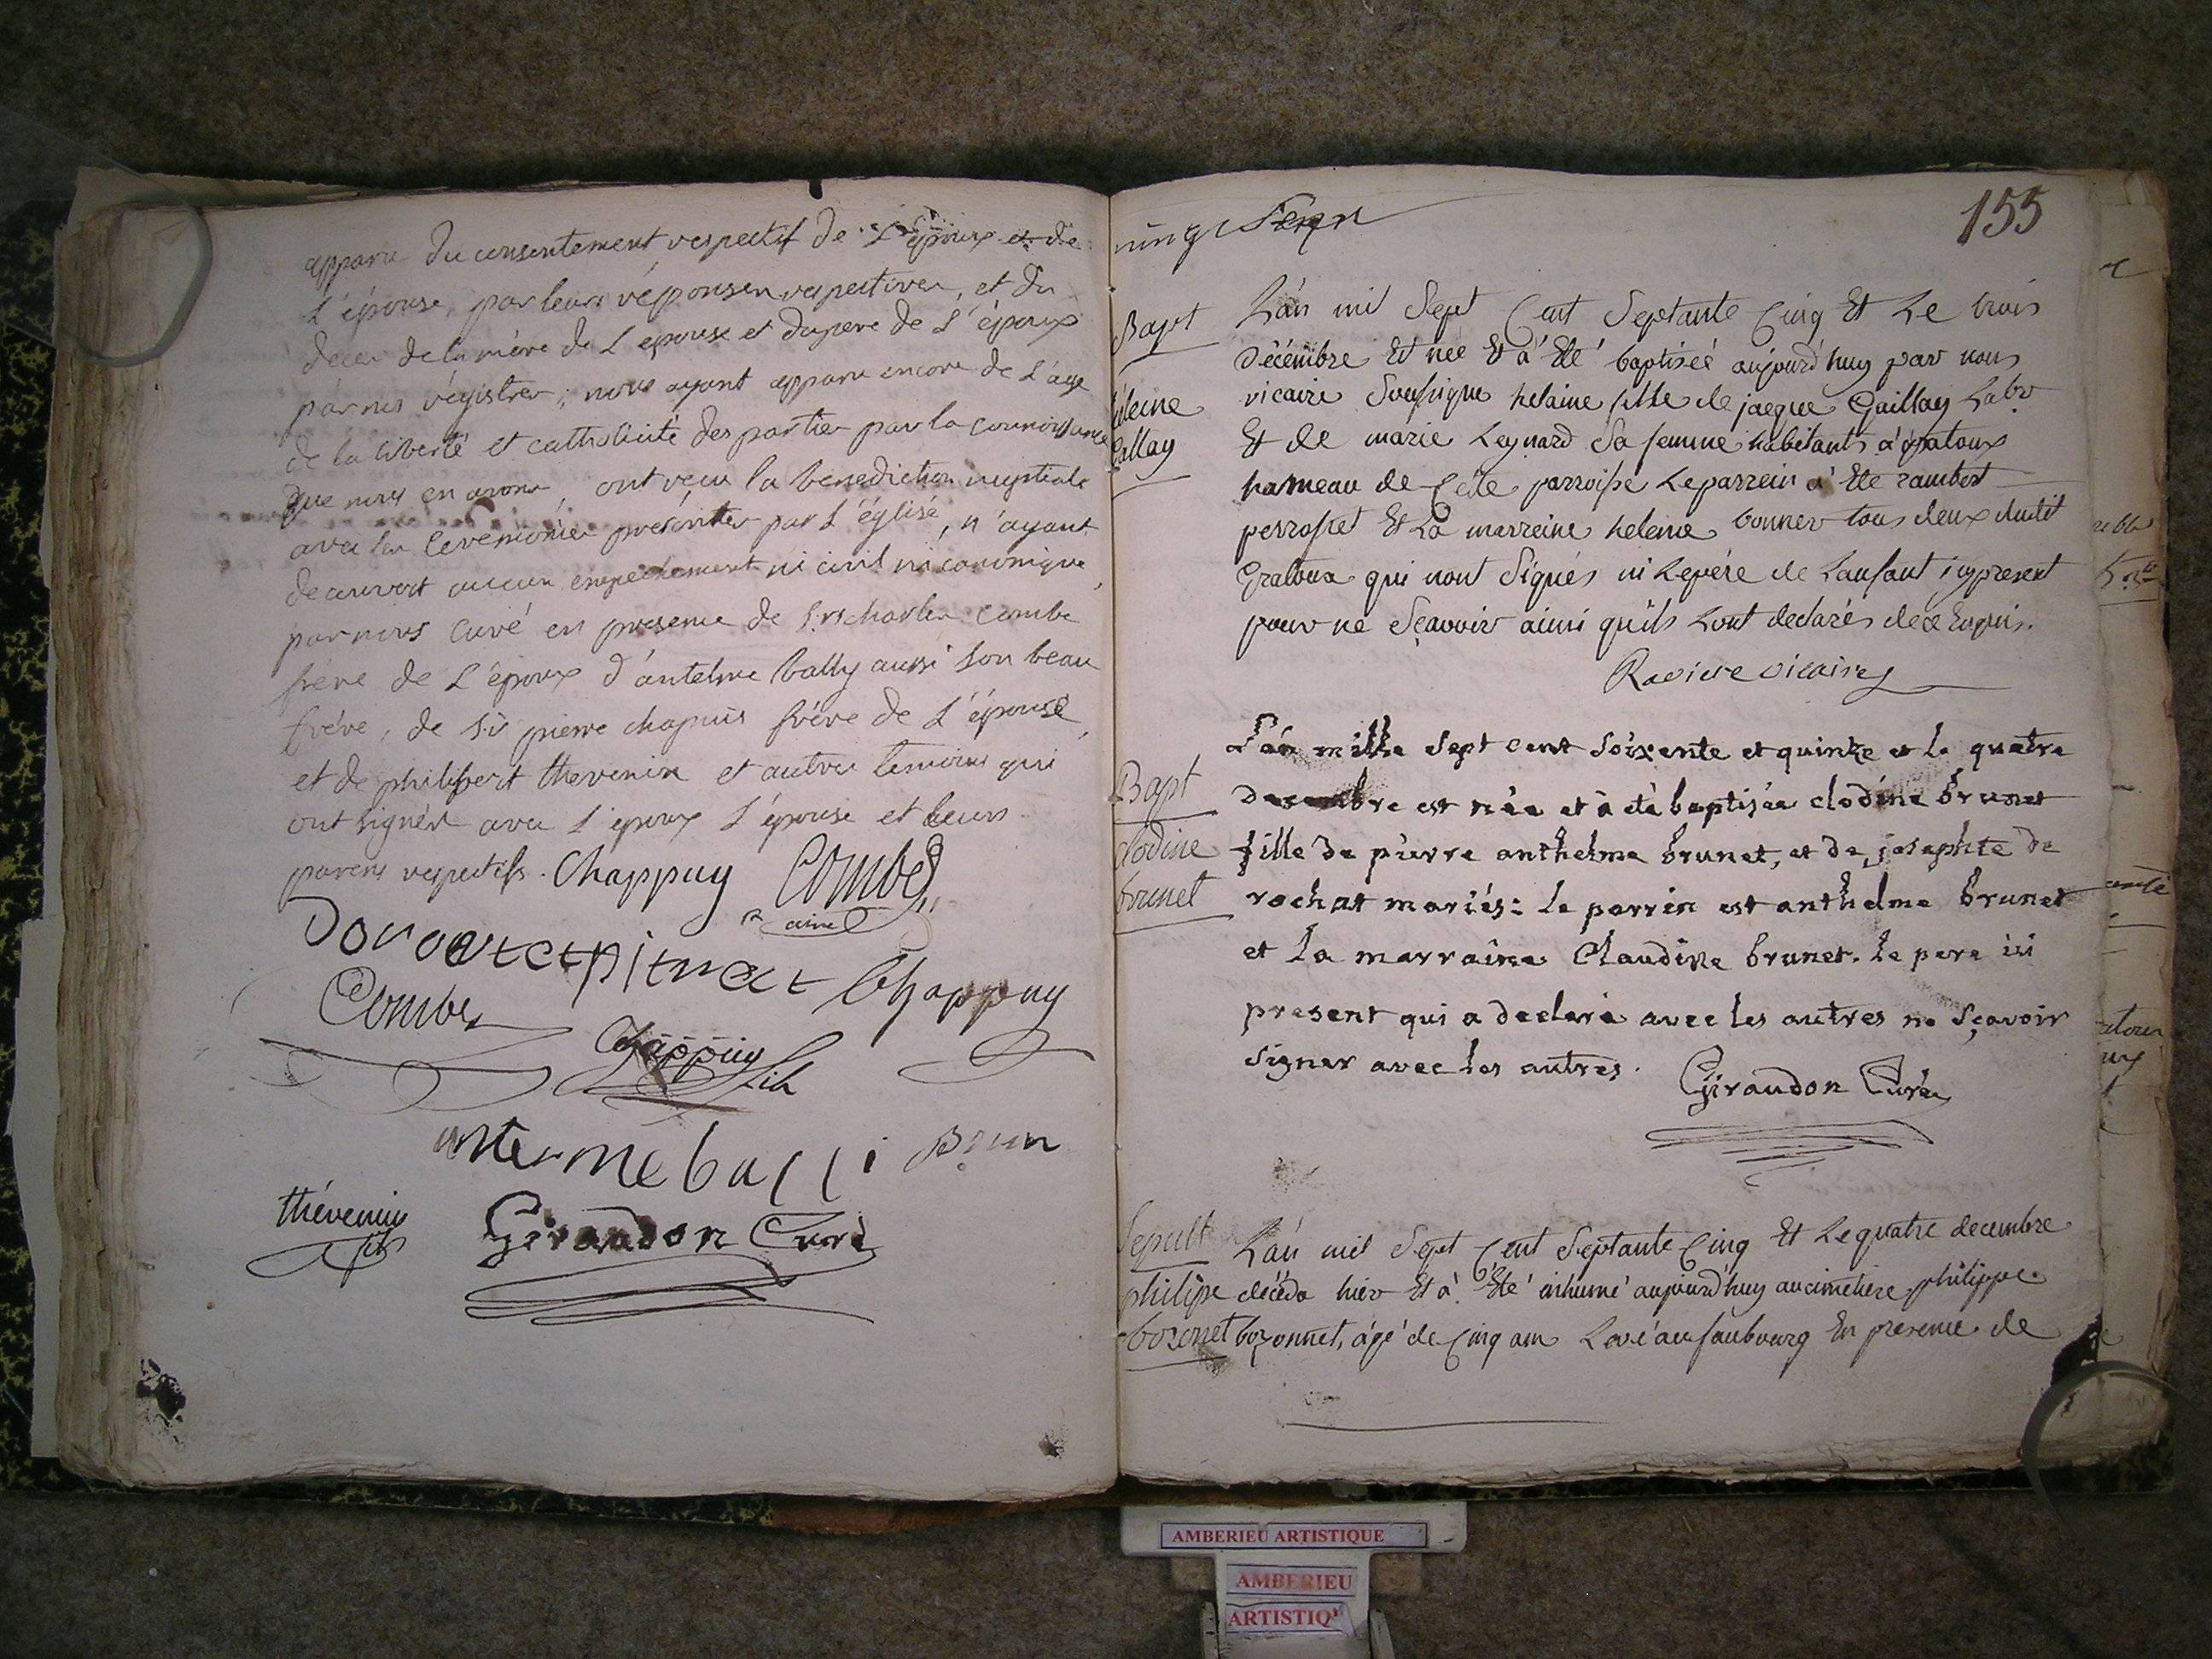 apparu du consentement respectif de L'époux et de
L'épouse, par leurs réponses respectives, et du
decer de la mère de L'epouse et du pere de L'époux
par nos régistres; nous ayant apparu encore de L'age
de la liberté et catholicité des parties par la connoissance
que nous en avons, ont reçu la benediction nuptiale
avec les ceremonies presentes par L'église, n'ayant
decouvert aucun empechement ni civil ni canonique
par nous curé en presence de charles combe
frere de L'époux d'antelme bally aussi son beau
frére, de Sr pierre chapuis frére de L'épouse,
et de philibert thevenin et autres temoins qui
ont signés avec L'epoux L'épouse et leurs
parens respectifs. Chappuy Combe
ainé
pitrat Chappuy
Combe
Chappuy fils
antermeballi Brun
thévenin
Giraudon Curé
155
Bapt
héleine
Gallay
L'an mil Sept Cent Septante Cinq Et Le trois
Décémbre Et neé Et á Eté baptiseé aujourd'huy par nous
vicaire Soussigne helaine fille de jacque Gaillay Labr
Et de márie Leynard Sa femme habitants á gratoux
hameau de Cette parroisse Le parrein á Ete rambert
perrosset Et La marreine heleine bonner tous deux dudit
Gratoux qui nont Signés ni Le pére de Lenfant icy present
pour ne Sçavoir ainsi quils Lont declarés de ce Enquis.
Raviere vicaire
Bapt
clodine
brunet
L'an mille Sept cent Soixente et quinze et le quatre
decembre est née et à eté baptisée clodine brunet
fille de pierre anthelme brunet, et de josephte de
rochat mariés: le parrin est anthelme brunet
et la marraine Claudine brunet. le pere ici
present qui a declaré avec les autres ne Sçavoir
signer avec les autres. Giraudon Curé
Sepult
philipe
bozonet
L'an mil Sept Cent Septante Cinq Et Le quatre decembre
décéda hier Et á Eté inhumé aujourd'huy au cimetiere philippe
bozonnet, ágé de Cinq ans au faubourg En presence de
AMBERIEU ARTISTIQUE
AMBERIEU
ARTISTIQ